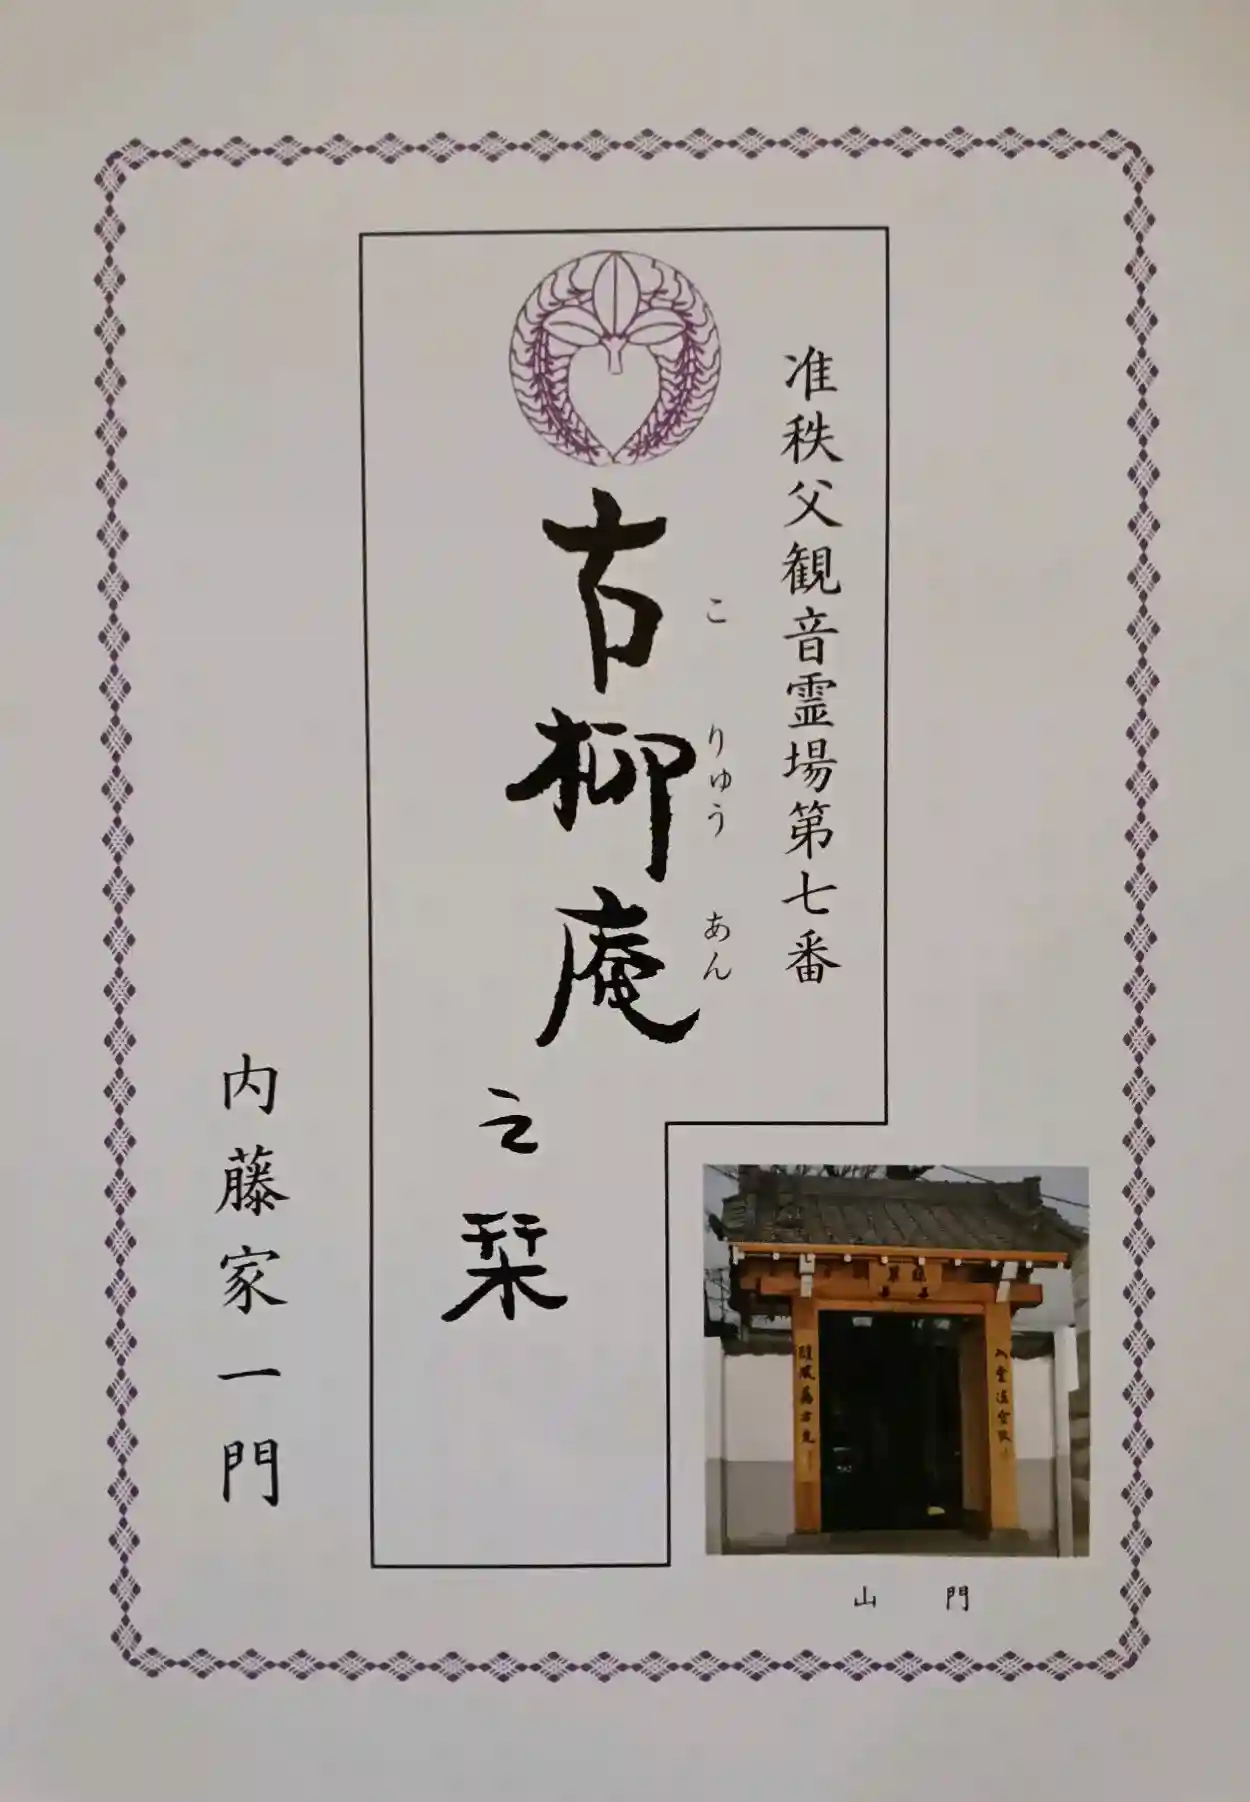 准秩父観音霊場第七番
こ りゅう あん
古柳庵之栞
内藤家一門
山門